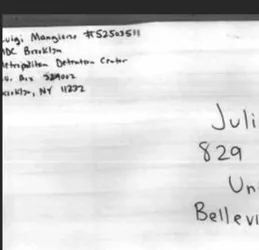 uigi Mangione #52503511
MDC Brooklyn
etropolitan Detention Center
P.O. Box 329002
rooklyn, NY 11232
Juli
829
Uni
Bellevi